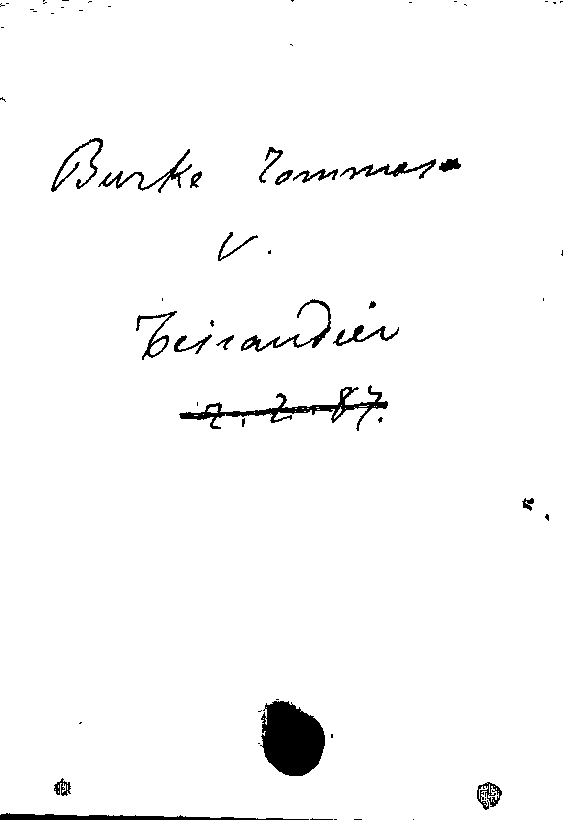 Burke Tommaso
v.
Teisandier
2.2.87.